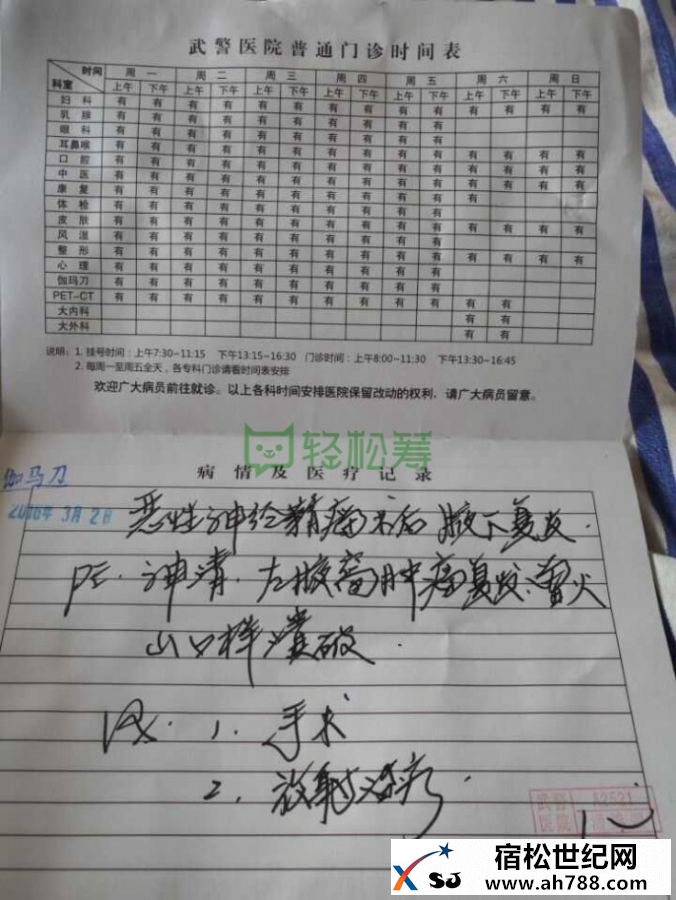 武警医院普通门诊时间表
时间 科室 周一 周二 周三 周四 周五 周六 周日
上午 下午 上午 下午 上午 下午 上午 下午 上午 下午 上午 下午 上午 下午
妇科 有 有 有 有 有 有 有 有 有 有 有 有 有 有
乳腺 有 有 有 有 有 有 有 有 有 有
眼科 有 有 有 有 有 有 有 有 有 有
耳鼻喉 有 有 有 有 有 有 有 有 有 有 有 有 有 有
口腔 有 有 有 有 有 有 有 有 有 有 有 有 有 有
中医 有 有 有 有 有 有 有 有 有 有 有 有 有 有
康复 有 有 有 有 有 有 有 有 有 有 有
体检 有 有 有 有 有 有 有 有 有 有
皮肤 有 有 有 有 有 有 有 有 有 有 有 有 有 有
风湿 有 有 有 有 有 有 有 有 有 有
整形 有 有 有 有 有 有 有 有 有 有 有 有 有 有
心理 有 有 有 有 有 有 有 有 有 有
伽玛刀 有 有 有 有 有 有 有 有 有 有
PET-CT 有 有 有 有 有 有 有 有 有 有 有 有
大内科 有 有
大外科 有 有
说明：1. 挂号时间：上午7:30~11:15 下午13:15~16:30 门诊时间：上午8:00~11:30 下午13:30~16:45
2. 每周一至周五全天，各专科门诊请看时间表安排
欢迎广大病员前往就诊。以上各科时间安排医院保留改动的权利，请广大病员留意。
轻松筹
病情及医疗记录
伽马刀
2016年3月2日
恶性神经鞘瘤术后腋下复发.
PE. 神清. 左腋窝肿瘤复发. 火
山口样溃破.
Rx. 1. 手术
2. 放射治疗.
武警 A2521
医院
宿松世纪网
XSJ
www.ah788.com